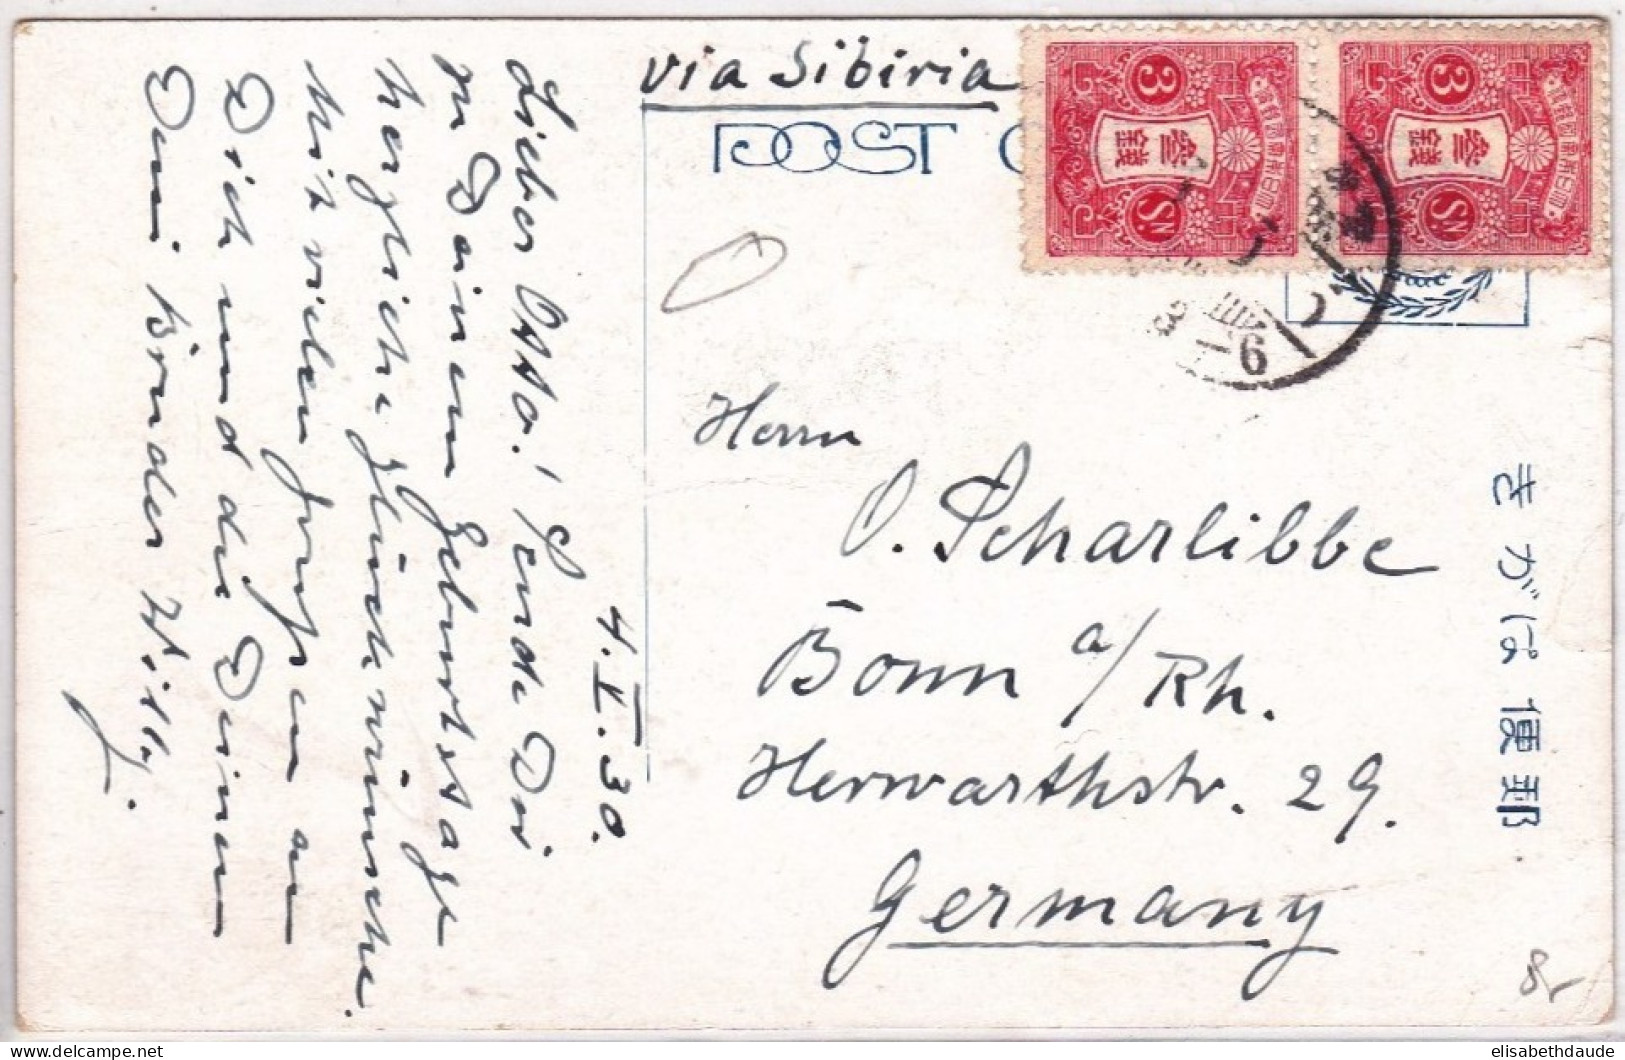 via Sibiria
POST C
3
3
SN
SN
参銭
参銭
6
Herrn
O. Scharlibbe
Bonn a/Rh.
Herwarthstr. 29.
Germany
きがは便郵
4. V. 30.
Lieber Otto! Sende Dir
zu Deinem Geburtstage
herzliche Glückwünsche.
Mit vielen Grüßen an
Dich und die Deinen
Dein Bruder Willy.
8,-
elisabethdaude